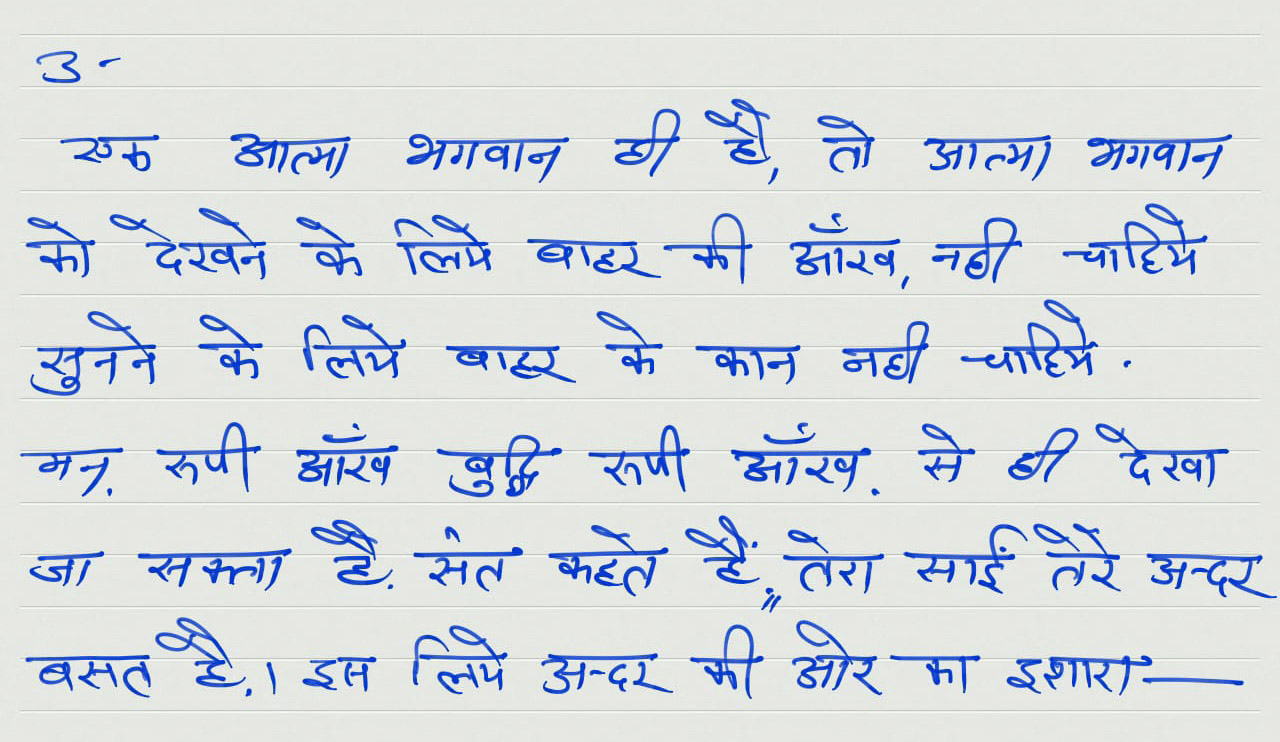 3-
एक आत्मा भगवान ही है, तो आत्मा भगवान
को देखने के लिये बाहर की आँख, नही चाहिये
सुनने के लिये बाहर के कान नही चाहिये.
मन. रूपी आँख बुद्धि रूपी आँख. से ही देखा
जा सकता है. संत कहते हैं,, तेरा साईं तेरे अन्दर
बसत है.। इस लिये अन्दर की ओर का इशारा —